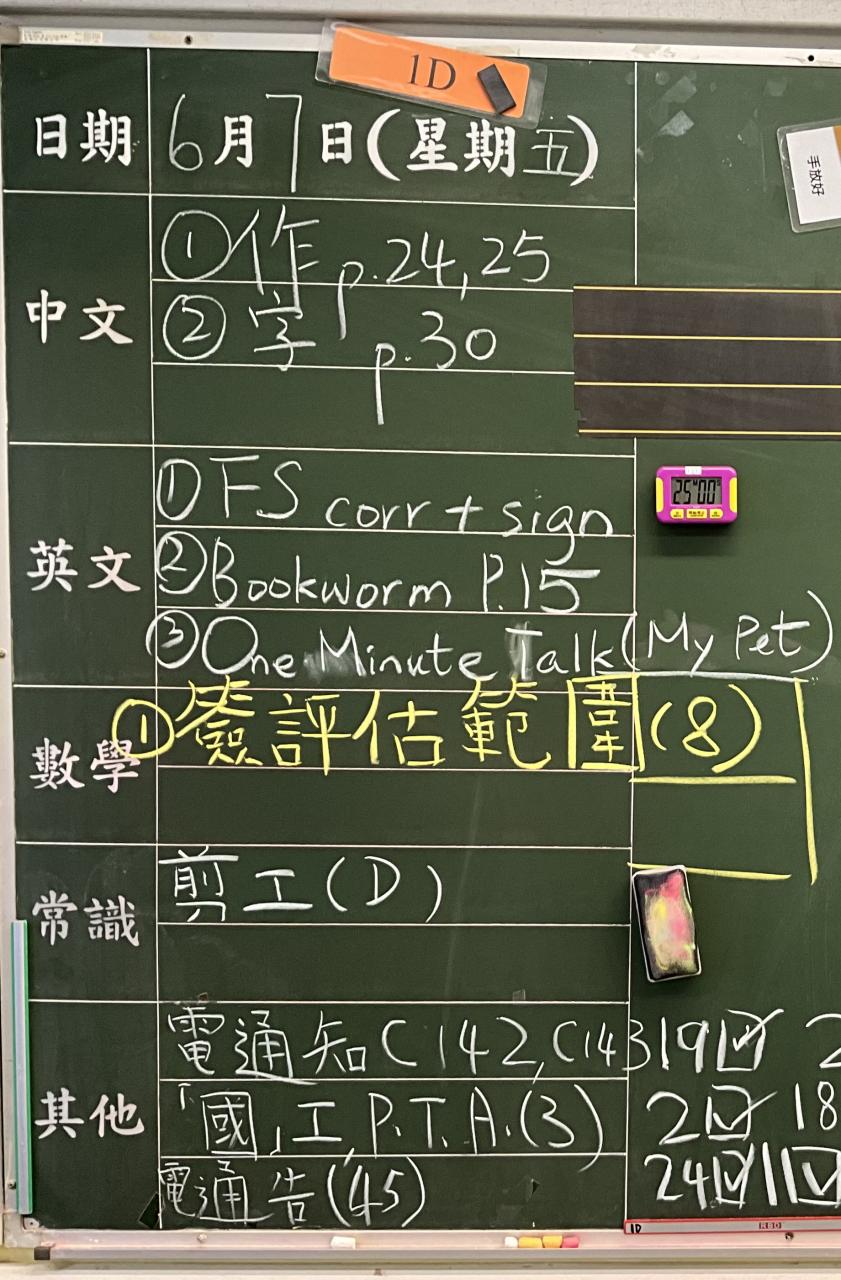 1D
日期 6月7日(星期五)
手放好
中文
①作 p.24,25
②字 p.30
英文
①FS corr + sign
25 00
②Bookworm P.15
③One Minute Talk(My Pet)
數學
①簽評估範圍(8)
常識
剪工(D)
其他
電通知C142,C143 19☑ 2
「國」工,P.T.A.(3) 2☑ 18
電通告(45) 24☑ 11☑
1D